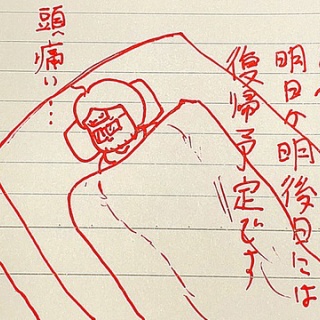 明日か明後日には
復帰予定です
頭痛い…